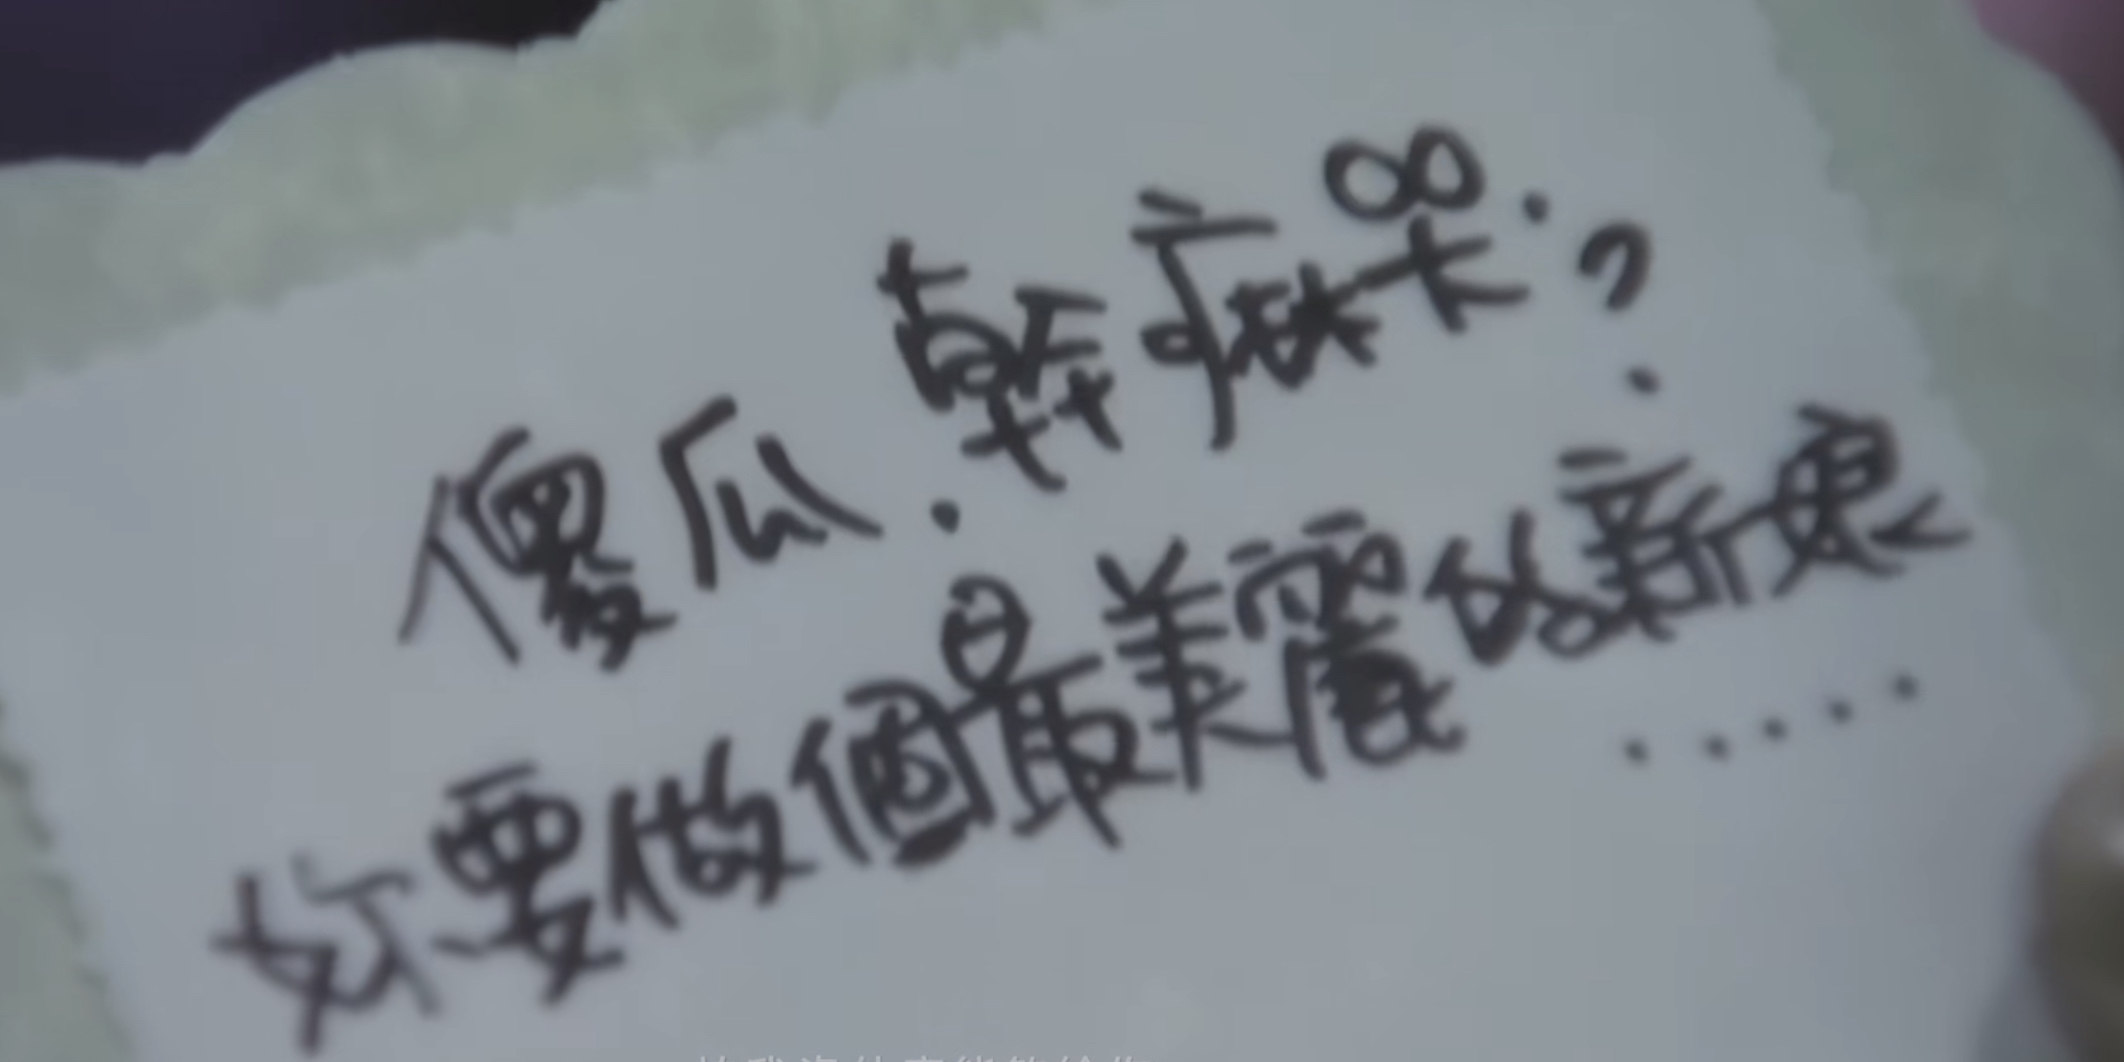 傻瓜.幹麻哭.?
妳要做個最美麗的新娘
.....